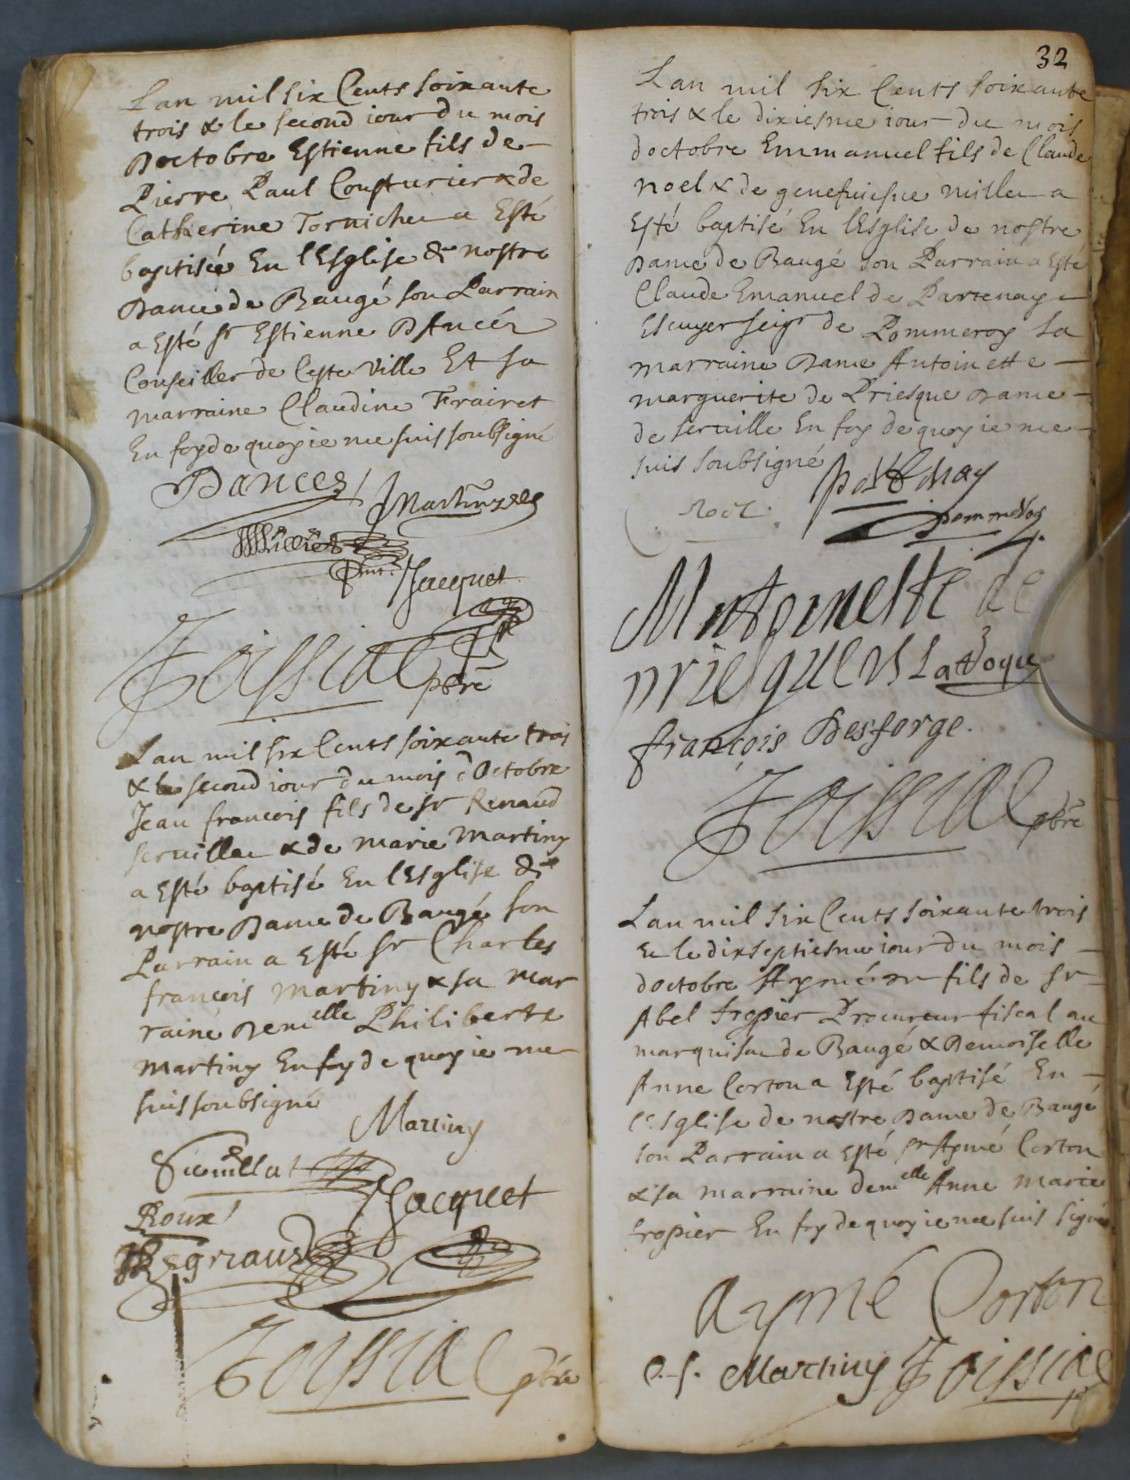 Lan mil six Cents soixante
trois & le second iour du mois
Doctobre Estienne fils de
Pierre Paul Cousturier & de
Catherine Tornicher a Esté
baptisée En lEsglise de nostre
Dame de Baugé son Parrain
a Esté sr Estienne Dancéz
Conseiller de Ceste ville Et sa
marraine Claudine Frairet
En foy de quoy ie me suis soubsigné
Dancez
Jacquet
Toissiat pbre
Lan mil six Cents soixante trois
& le second iour du mois dOctobre
Jean francois fils de sr Renaud
& de marie Martiny
a Esté baptisé En lEsglise de
nostre Dame de Baugé son
Parrain a Esté sr Charles
francois Martiny & sa mar
raine Demelle Philiberte
Martiny En foy de quoy ie me
suis soubsigné
Martiny
Jacquet
Roux
Toissiat pbre
32
Lan mil six Cents soixante
trois & le dixiesme iour du mois
doctobre Emmanuel fils de Claude
noel & de genefuiefue a
Esté baptisé En lEsglise de nostre
Dame de Baugé son Parrain a Esté
Claude Emanuel de Partenay
Escuyer seigr de Pommeroy sa
marraine Dame Antoinette
marguerite de Priesque Dame
de En foy de quoy ie me
suis soubsigné
noel
pommeroy
Mntoinette de
françois Desforge.
Toissiat pbre
Lan mil six Cents soixante trois
Et le dixseptiesme iour du mois
doctobre fils de sr
Abel fropier Procureur fiscal au
marquisat de Baugé & Demoiselle
Anne Corton a Esté baptisé En
lEsglise de nostre Dame de Baugé
son Parrain a Esté sr Aymé Corton
& sa marraine demelle Anne marie
fropier En foy de quoy ie me suis signé
aymé Corton
Martiny Toissiat